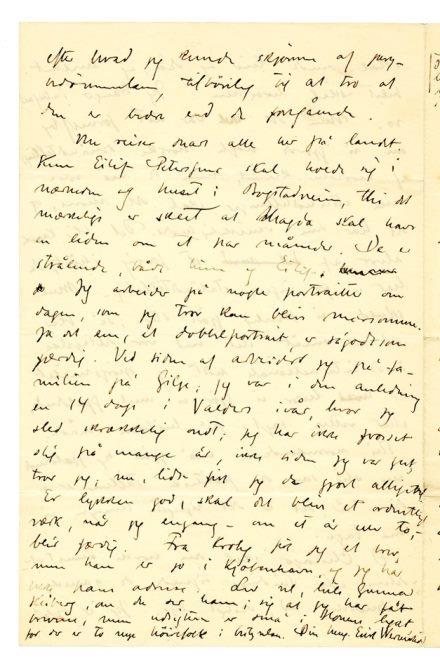 efter hvad jeg kunde skjønne af
bedømmelsen, tilbøielig til at tro at
den er bedre end de foregående.
Nu reiser snart alle her på landt.
Kun Eilif Peterssens skal holde sig i
nærheden og huset i Bogstadveien, thi det
mærkelige er skeet at Magda skal have
en liden om et par måneder. De er
strålende, både hun og Eilif,
Jeg arbeider på nogle portraitter om
dagen, som jeg tror kan blive morsomme.
Ja det ene, et dobbeltportrait, er sågodtsom
færdig. Ved siden af arbeider jeg på "Fa-
milien på Gilje", jeg var i den anledning
en 14 dage i Valders ivår, hvor jeg
sled skrækkelig ondt; jeg har ikke frosset
slig på mange år, ikke siden jeg var gut,
tror jeg, nu, lidt fik jeg da gjort alligevel
Er lykken god, skal det blive et ordentligt
værk, når jeg engang – om et år eller to,
blir færdig. Fra Krohg fik jeg et brev,
men han er jo i Kjøbenhavn, og jeg har
hans adresse. Du vil,
om du ser ham, sige at jeg har fåt
brevene, men
for der er to nye